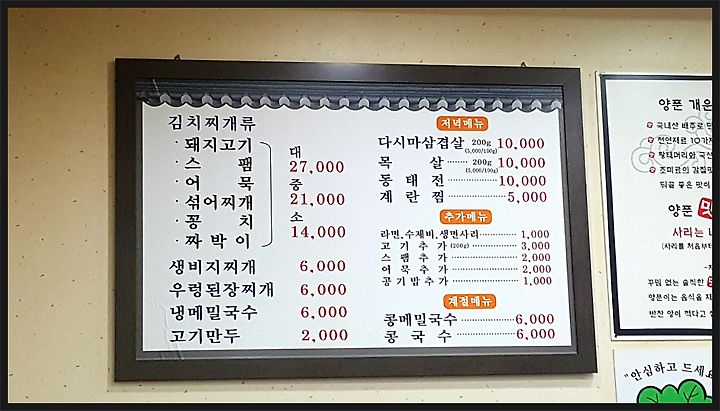 김치찌개류
· 돼지고기
· 스 팸
· 어 묵
· 섞어찌개
· 꽁 치
· 짜박이
대
27,000
중
21,000
소
14,000
생비지찌개 6,000
우렁된장찌개 6,000
냉메밀국수 6,000
고기만두 2,000
저녁메뉴
다시마삼겹살 200g (5,000/100g) 10,000
목 살 200g (5,000/100g) 10,000
동태전 10,000
계란찜 5,000
추가메뉴
라면.수제비.생면사리 1,000
고기추가 (200g) 3,000
스팸추가 2,000
어묵추가 2,000
공기밥추가 1,000
계절메뉴
콩메밀국수 6,000
콩국수 6,000
양푼 개운
국내산 배추로 만
천연재료 10가지
황태머리와 국산
조미료의 감칠맛
뒤끝 좋은 맛이
양푼 맛
사리는 나
(사리를 처음부터
꾸밈 없는 솔직한
양푼이는 음식을 지
반찬 양이 적다고 생
"안심하고 드세요